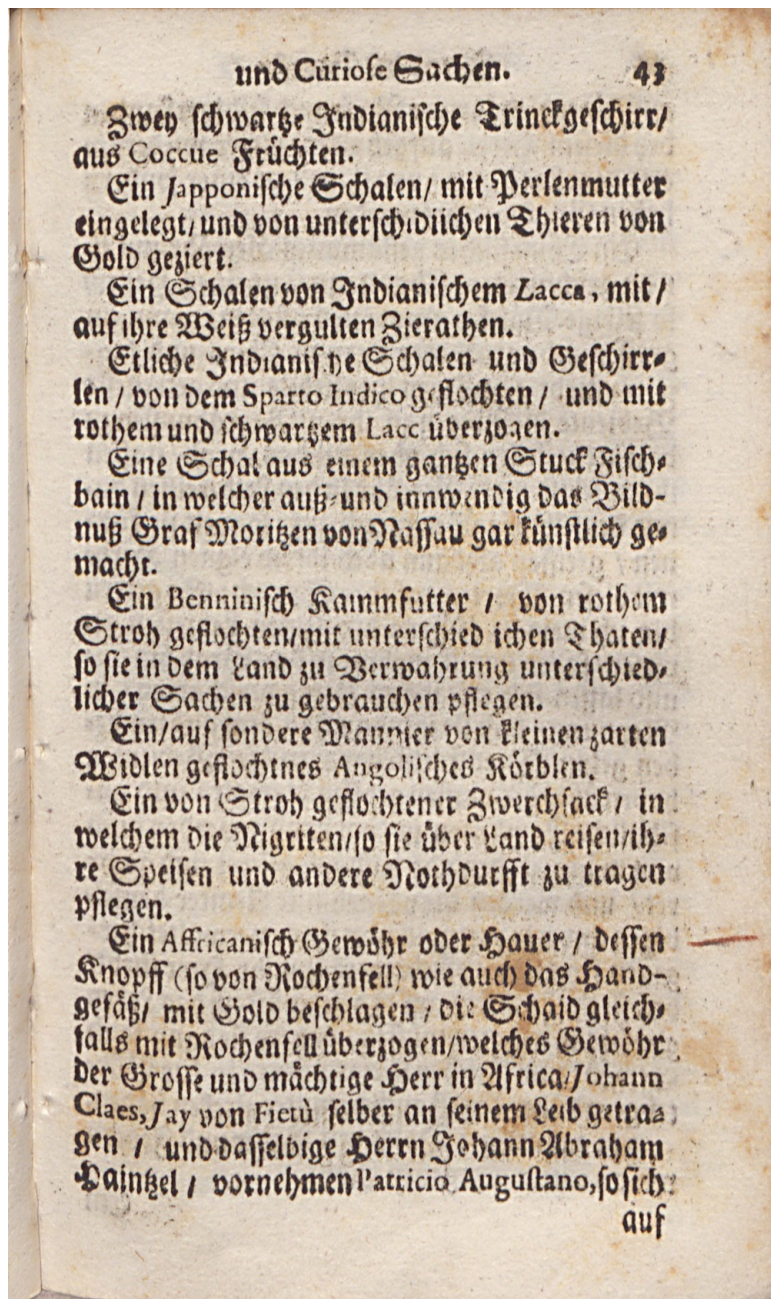 und Curiose Sachen. 43
Zwey schwartze Indianische Trinckgeschirr/
aus Coccue Früchten.
Ein Japponische Schalen/ mit Perlenmutter
eingelegt/ und von unterschidlichen Thieren von
Gold geziert.
Ein Schalen von Indianischem Lacca, mit/
auf ihre Weiß vergulten Zierathen.
Etliche Indianische Schalen und Geschirr-
len / von dem Sparto Indico geflochten / und mit
rothem und schwartzem Lacc überzogen.
Eine Schal aus einem gantzen Stuck Fisch-
bain / in welcher auß- und innwendig das Bild-
nuß Graf Moritzen von Nassau gar künstlich ge-
macht.
Ein Benninisch Kammfutter / von rothem
Stroh geflochten/mit unterschiedlichen Thaten/
so sie in dem Land zu Verwahrung unterschied-
licher Sachen zu gebrauchen pflegen.
Ein/auf sondere Mannier von kleinen zarten
Widlen geflochtnes Angolisches Körblen.
Ein von Stroh geflochtener Zwerchsack / in
welchem die Nigriten/so sie über Land reisen/ih-
re Speisen und andere Nothdurfft zu tragen
pflegen.
Ein Affricanisch Gewöhr oder Hauer / dessen
Knopff (so von Rochenfell) wie auch das Hand-
gefäß/ mit Gold beschlagen / die Schaid gleich-
falls mit Rochenfell überzogen/welches Gewöhr
der Grosse und mächtige Herr in Africa/Johann
Claes, Jay von Fietù selber an seinem Leib getra-
gen / und dasselbige Herrn Johann Abraham
Haintzel / vornehmen Patricio Augustano, so sich
auf